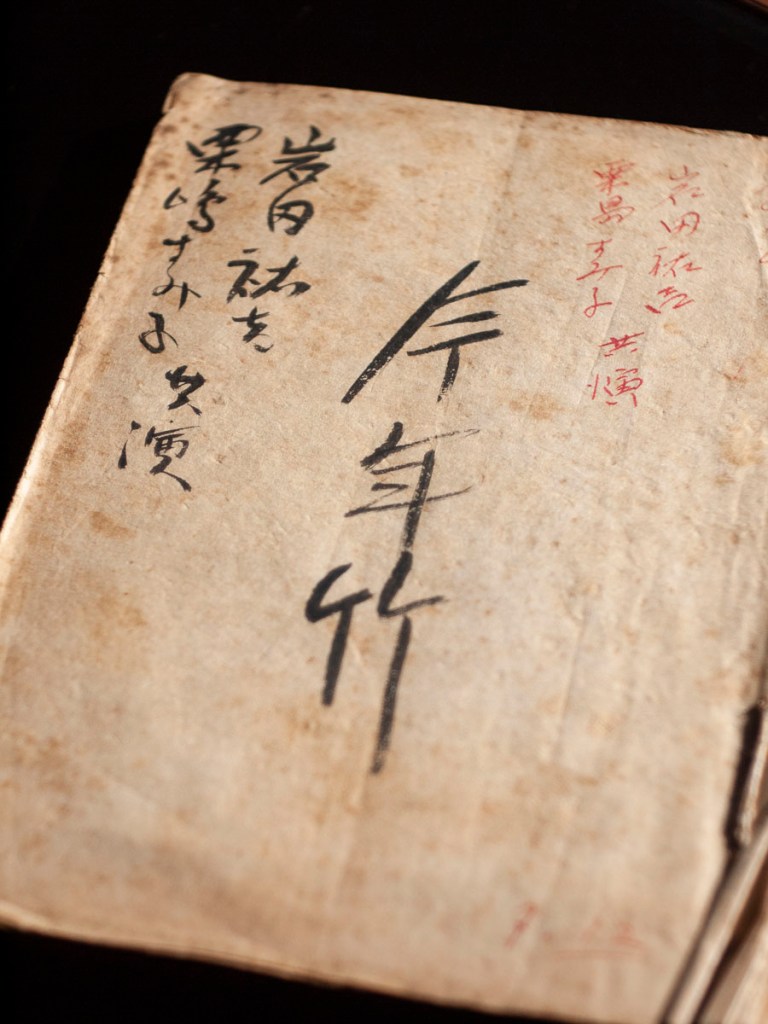 岩田祐吉
栗島すみ子
共演
今年竹
岩田祐吉
栗嶋すみ子
共演